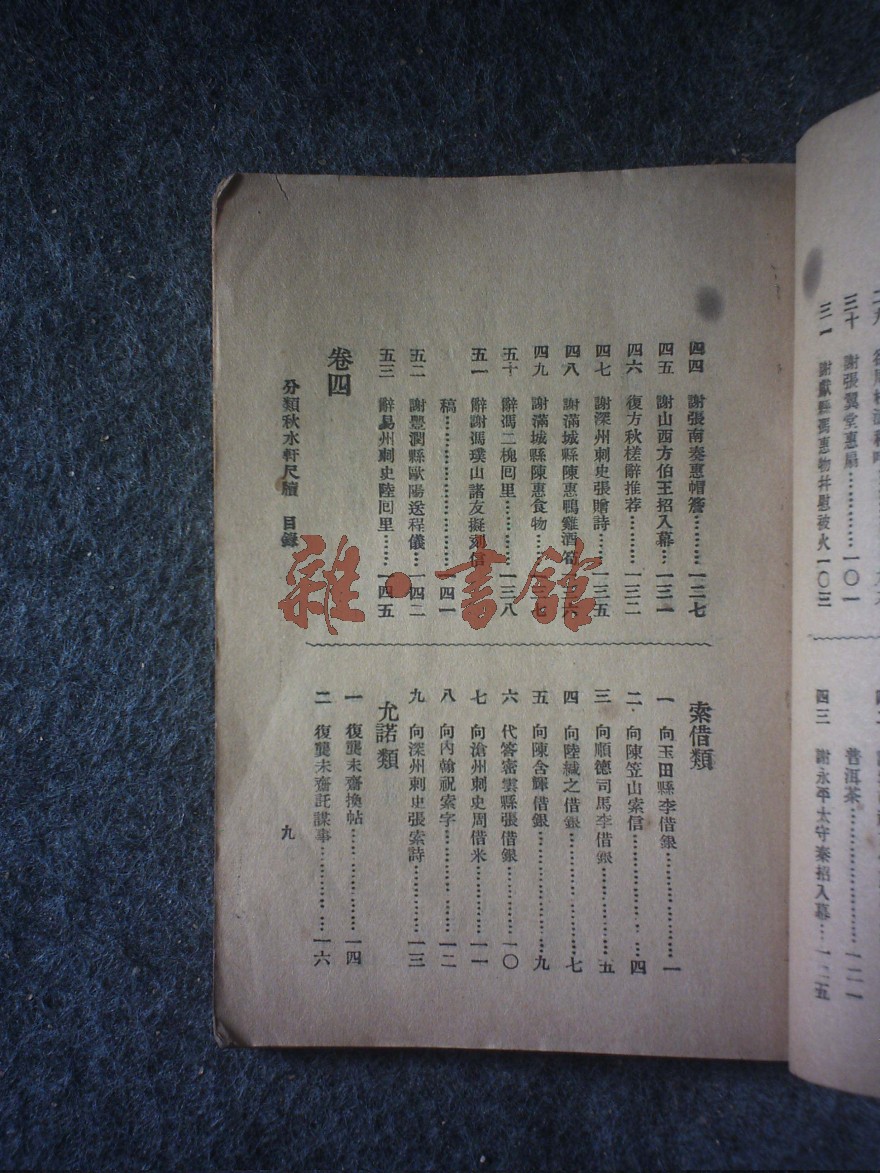 三十 謝張翼堂惠扇……………一〇一
三一 謝獻縣馮惠物幷慰被火一〇三
普洱茶……………一二一
四三 謝永平太守秦招入幕…一二五
四四 謝張南奏惠帽簷………一二七
四五 謝山西方伯王招入幕……一三一
四六 復方秋槎辭推荐………一三二
四七 謝深州刺史張贈詩……一三五
四八 謝滿城縣陳惠鴨雞酒筍
四九 謝滿城縣陳惠食物
五十 辭馮二槐囘里…………一三八
五一 辭謝馮璞山諸友擬刻信
稿……………一四一
五二 謝豐潤縣歐陽送程儀……一四二
五三 辭易州刺史陸囘里……一四五
卷四
索借類
一 向玉田縣李借銀……………一
二 向陳笠山索信……………四
三 向順德司馬李借銀…………五
四 向陸緘之借銀……………七
五 向陳含輝借銀……………九
六 代答密雲縣張借銀………一〇
七 向滄州刺史周借米………一一
八 向內翰祝索字……………一二
九 向深州刺史張索詩………一三
允諾類
一 復龔未齋換帖……………一四
二 復龔未齋託謀事…………一六
分類秋水軒尺牘 目錄
九
雜·書館